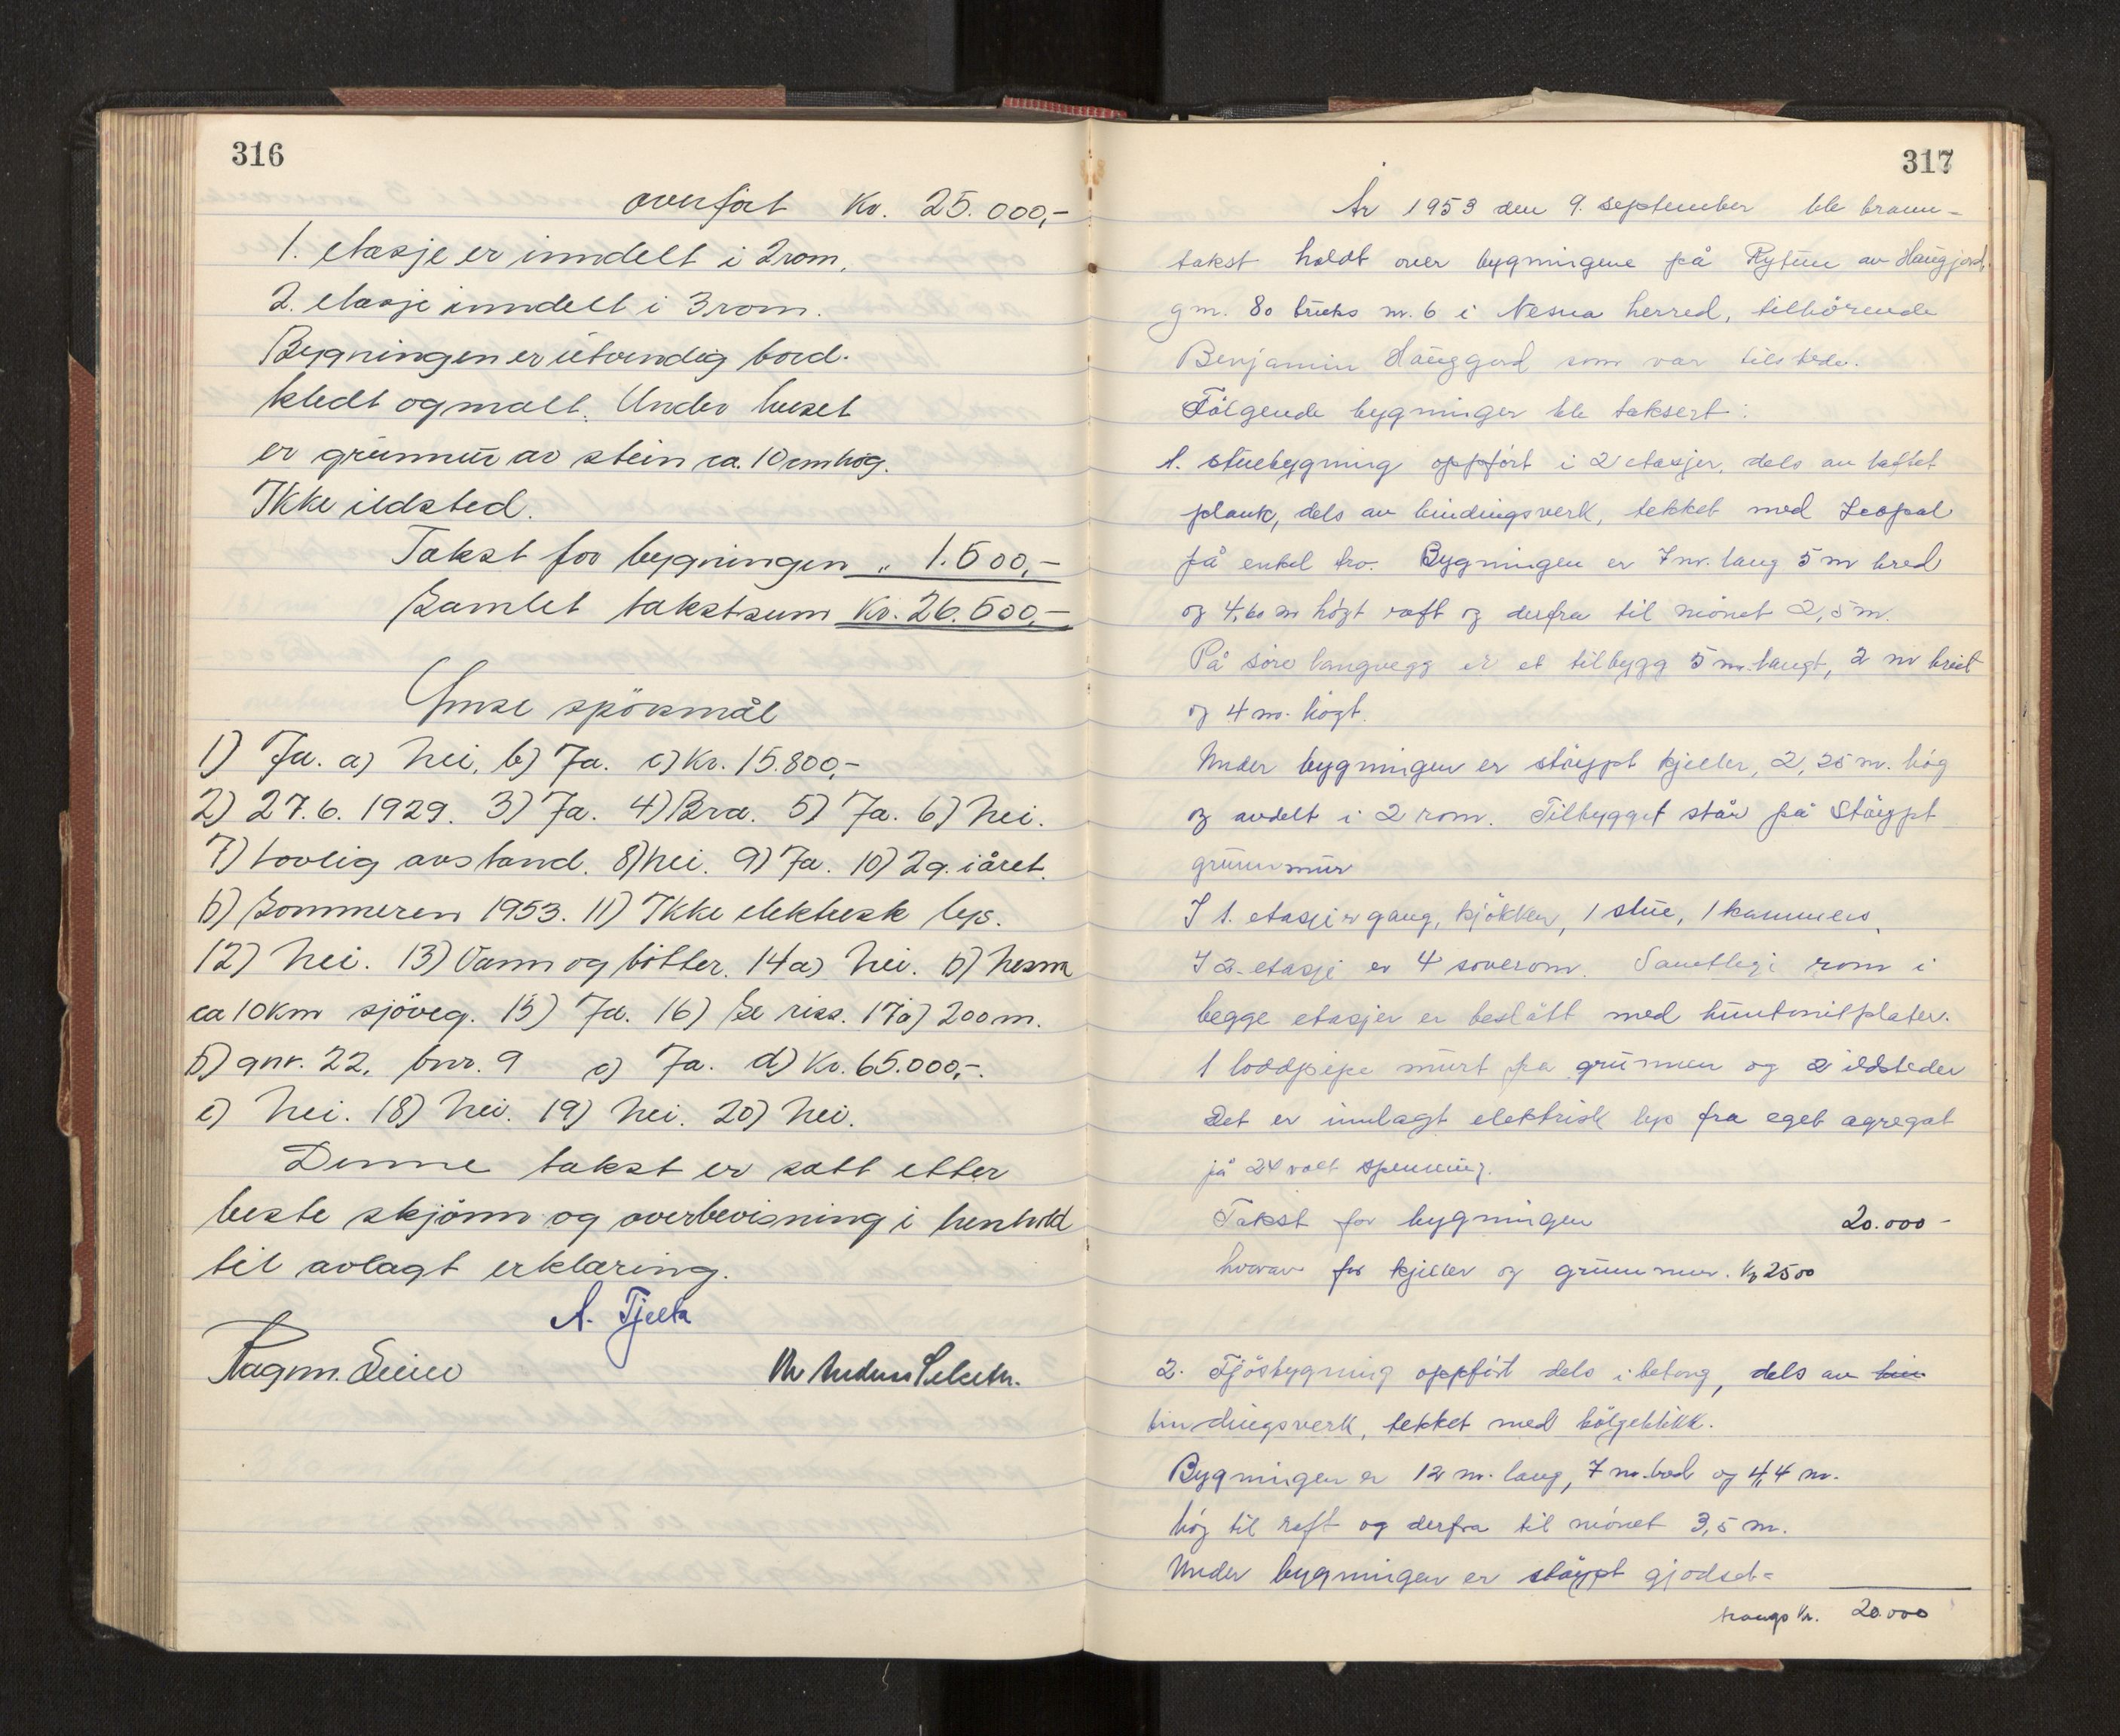 316
overfört Kr. 25.000,-
1. etasje er inndelt i 2 rom.
2. etasje inndelt i 3 rom.
Bygningen er utvendig bord-
kledt og malt. Under huset
er grunnmur av stein ca. 10 cm hög.
Ikke ildsted.
Takst for bygningen " 1.500,-
Samlet takstsum Kr. 26.500,-
Ymse spörsmål
1) Ja. a) Nei. b) Ja. c) Kr. 15.800,-
2) 27.6. 1929. 3) Ja. 4) Bra. 5) Ja. 6) Nei.
7) Lovlig avstand. 8) Nei. 9) Ja. 10) 2 g. i året.
b) Sommeren 1953. 11) Ikke elektrisk lys.
12) Nei. 13) Vann og bötter. 14 a) Nei. b) Nesna
ca 10 km sjöveg. 15) Ja. 16) Se riss. 17 a) 200 m.
b) gnr. 22, bnr. 9 c) Ja. d) Kr. 65.000,-.
e) Nei. 18) Nei. 19) Nei. 20) Nei.
Denne takst er satt etter
beste skjönn og overbevisning i henhold
til avlagt erklæring.
A. Tjelta
Ragnv.
317
År 1953 den 9. september ble brann-
takst holdt over bygningene på Rytun av Haugjord,
gnr. 80 bruks nr. 6 i Nesna herred, tilhörende
Benjamin Hauggord som var tilstede.
Fölgende bygninger ble taksert:
1. stuebygning oppfört i 2 etasjer, dels av laftet
plank, dels av bindingsverk, tekket med Icopal
på enkel tro. Bygningen er 7 m. lang 5 m bred
og 4,60 m högt raft og derfra til mönet 2,5 m.
På söre langvegg er et tilbygg 5 m. langt, 2 m breit
og 4 m. högt.
Under bygningen er stöypt kjeller, 2,25 m. hög
og avdelt i 2 rom. Tilbygget står på stöypt
grunnmur
I 1. etasje er gang, kjökken, 1 stue, 1 kammers.
I 2. etasje er 4 soverom. Samtlege rom i
begge etasjer er beslått med huntonitplater.
1 loddpipe murt fra grunnen og 2 ildsteder
Det er innlagt elektrisk lys fra eget agregat
på 24 volt spenning.
Takst for bygningen 20.000 -
hvorav for kjeller og grunnmur. Kr 2500
2. Fjösbygning oppfört dels i betong, dels av bin
bindingsverk, tekket med bölgeblikk.
Bygningen er 12 m. lang, 7 m. bred og 4,4 m.
hög til raft og derfra til mönet 3,5 m.
Under bygningen er stöypt gjödsel-
transp Kr. 20.000